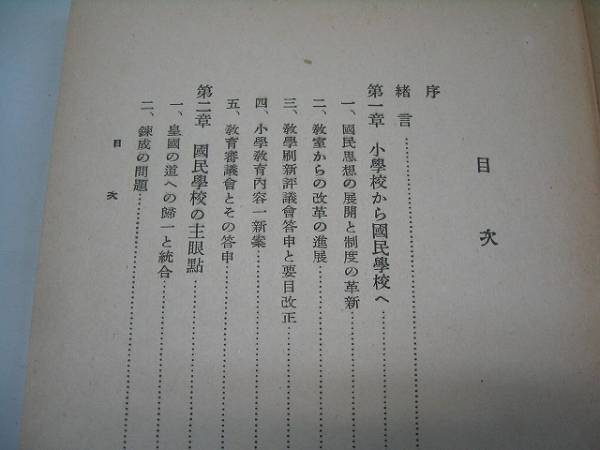 目次
序
緒言
第一章 小學校から國民學校へ
一、國民思想の展開と制度の革新
二、教室からの改革の進展
三、教學刷新評議會答申と要目改正
四、小學教育內容一新案
五、教育審議會とその答申
第二章 國民學校の主眼點
一、皇國の道への歸一と統合
二、鍊成の問題
目次